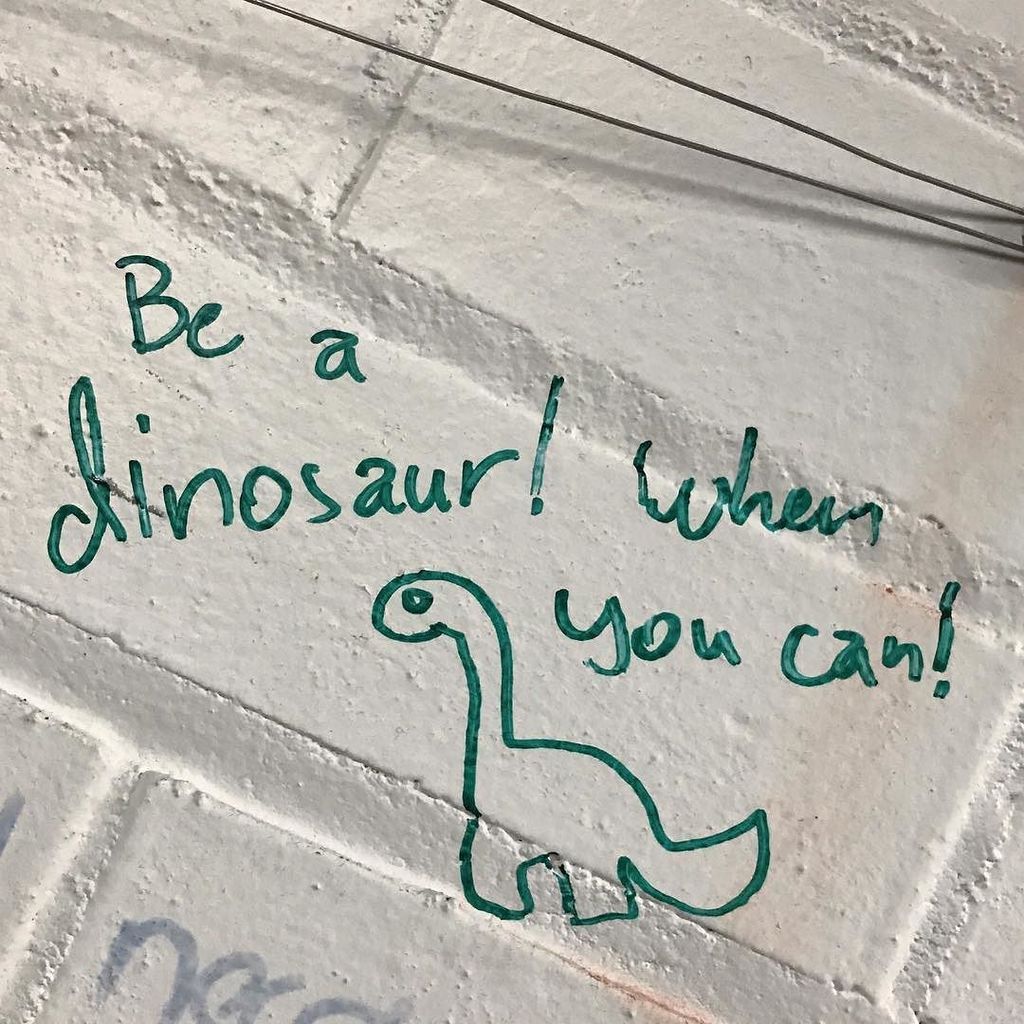 Be a
dinosaur! When
you can!